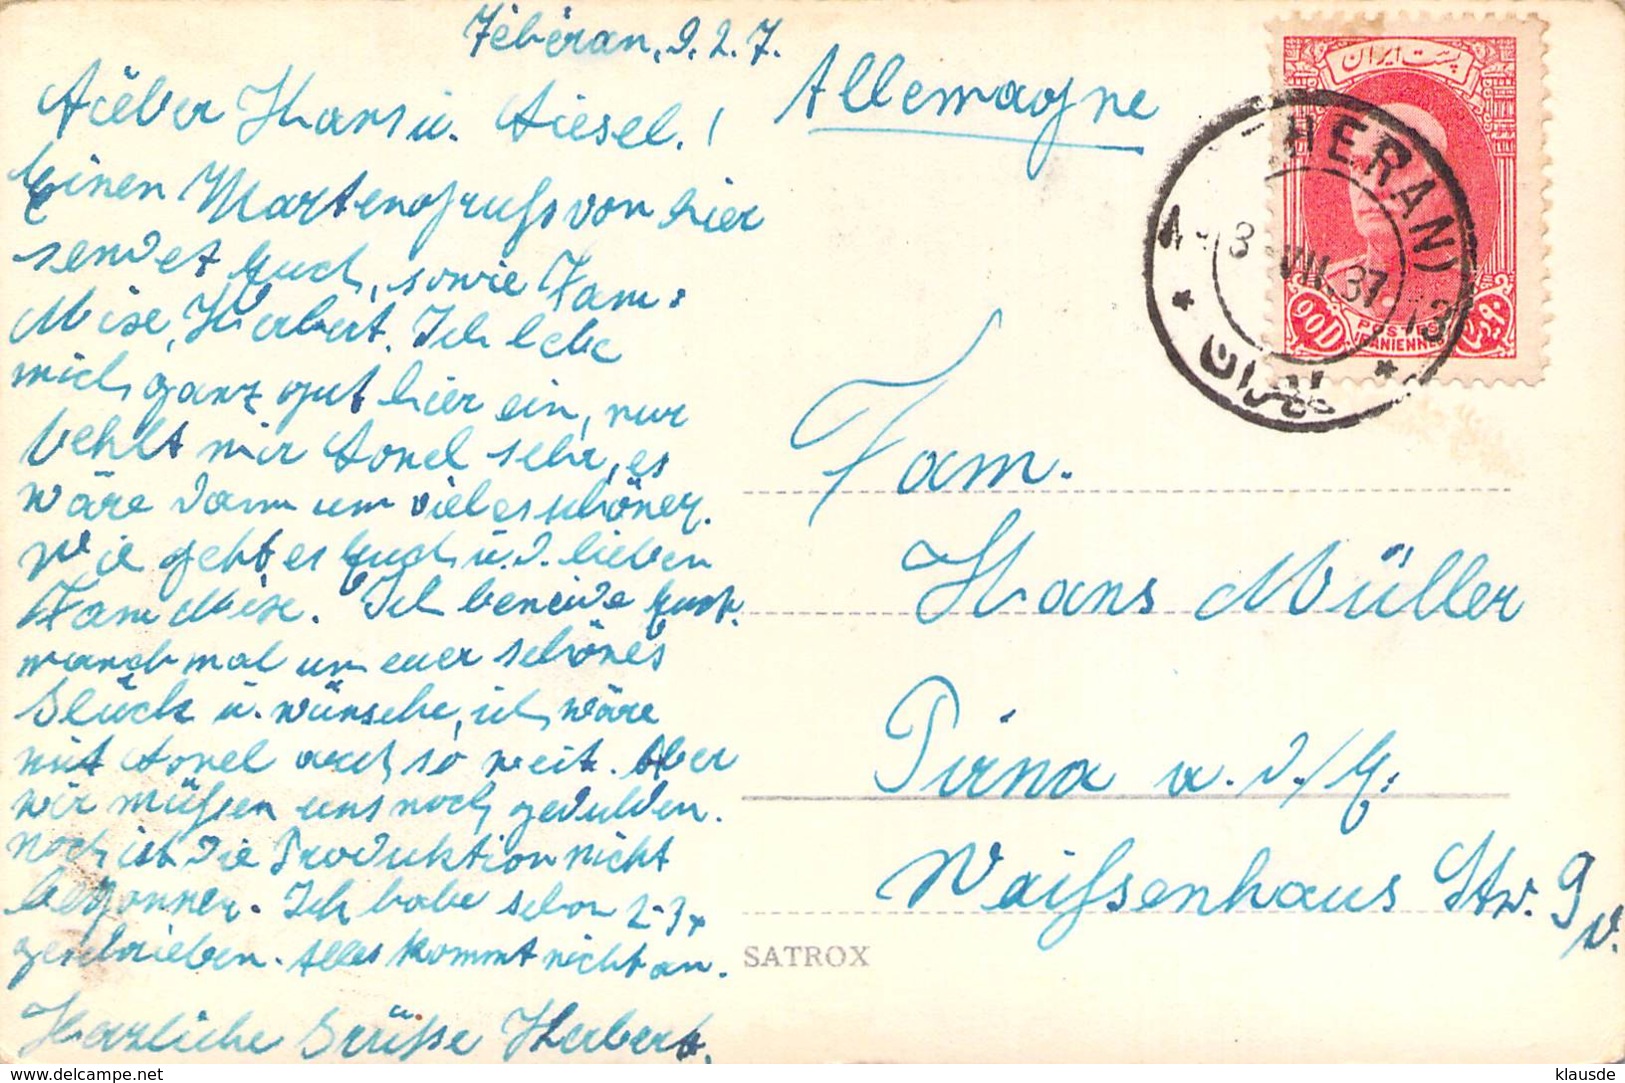 Téhéran, 9. 2. 7.
Lieber Hans u. Liesel!
Einen Kartengruß von hier
sendet Euch, sowie Fam:
Mise, Herbert. Ich lebe
mich ganz gut hier ein, nur
fehlt mir sehr, es
wäre dann um vieles schöner.
Wie geht es Euch u. d. lieben
Fam Mise. Ich beneide Euch
manchmal um euer schönes
Glück u. wünsche, ich wäre
mit auch so weit. Aber
wir müßen uns noch gedulden.
Noch ist die Produktion nicht
begonnen. Ich habe schon 2-3x
geschrieben. Alles kommt nicht an.
Herzliche Grüße Herbert.
Allemagne
Fam.
Hans Müller
Pirna a. d./E.
Waißenhaus Str. 9
SATROX
پست ایران
90D
POSTES
IRANIENNES
HERAN)
3 VII. 37
طهران
klausde
www.delcampe.net